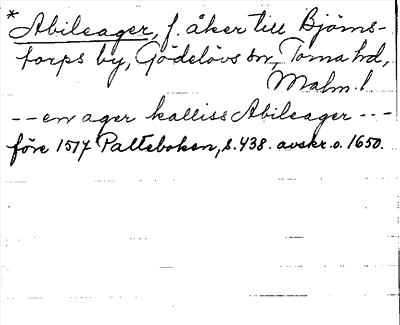 * Abileager, f. åker till Björns-
torps by, Gödelövs sn, Torna hd,
Malm. l.
-- en ager kalliss Abileager ---
före 1517 Palteboken, s. 438. avskr. o. 1650.